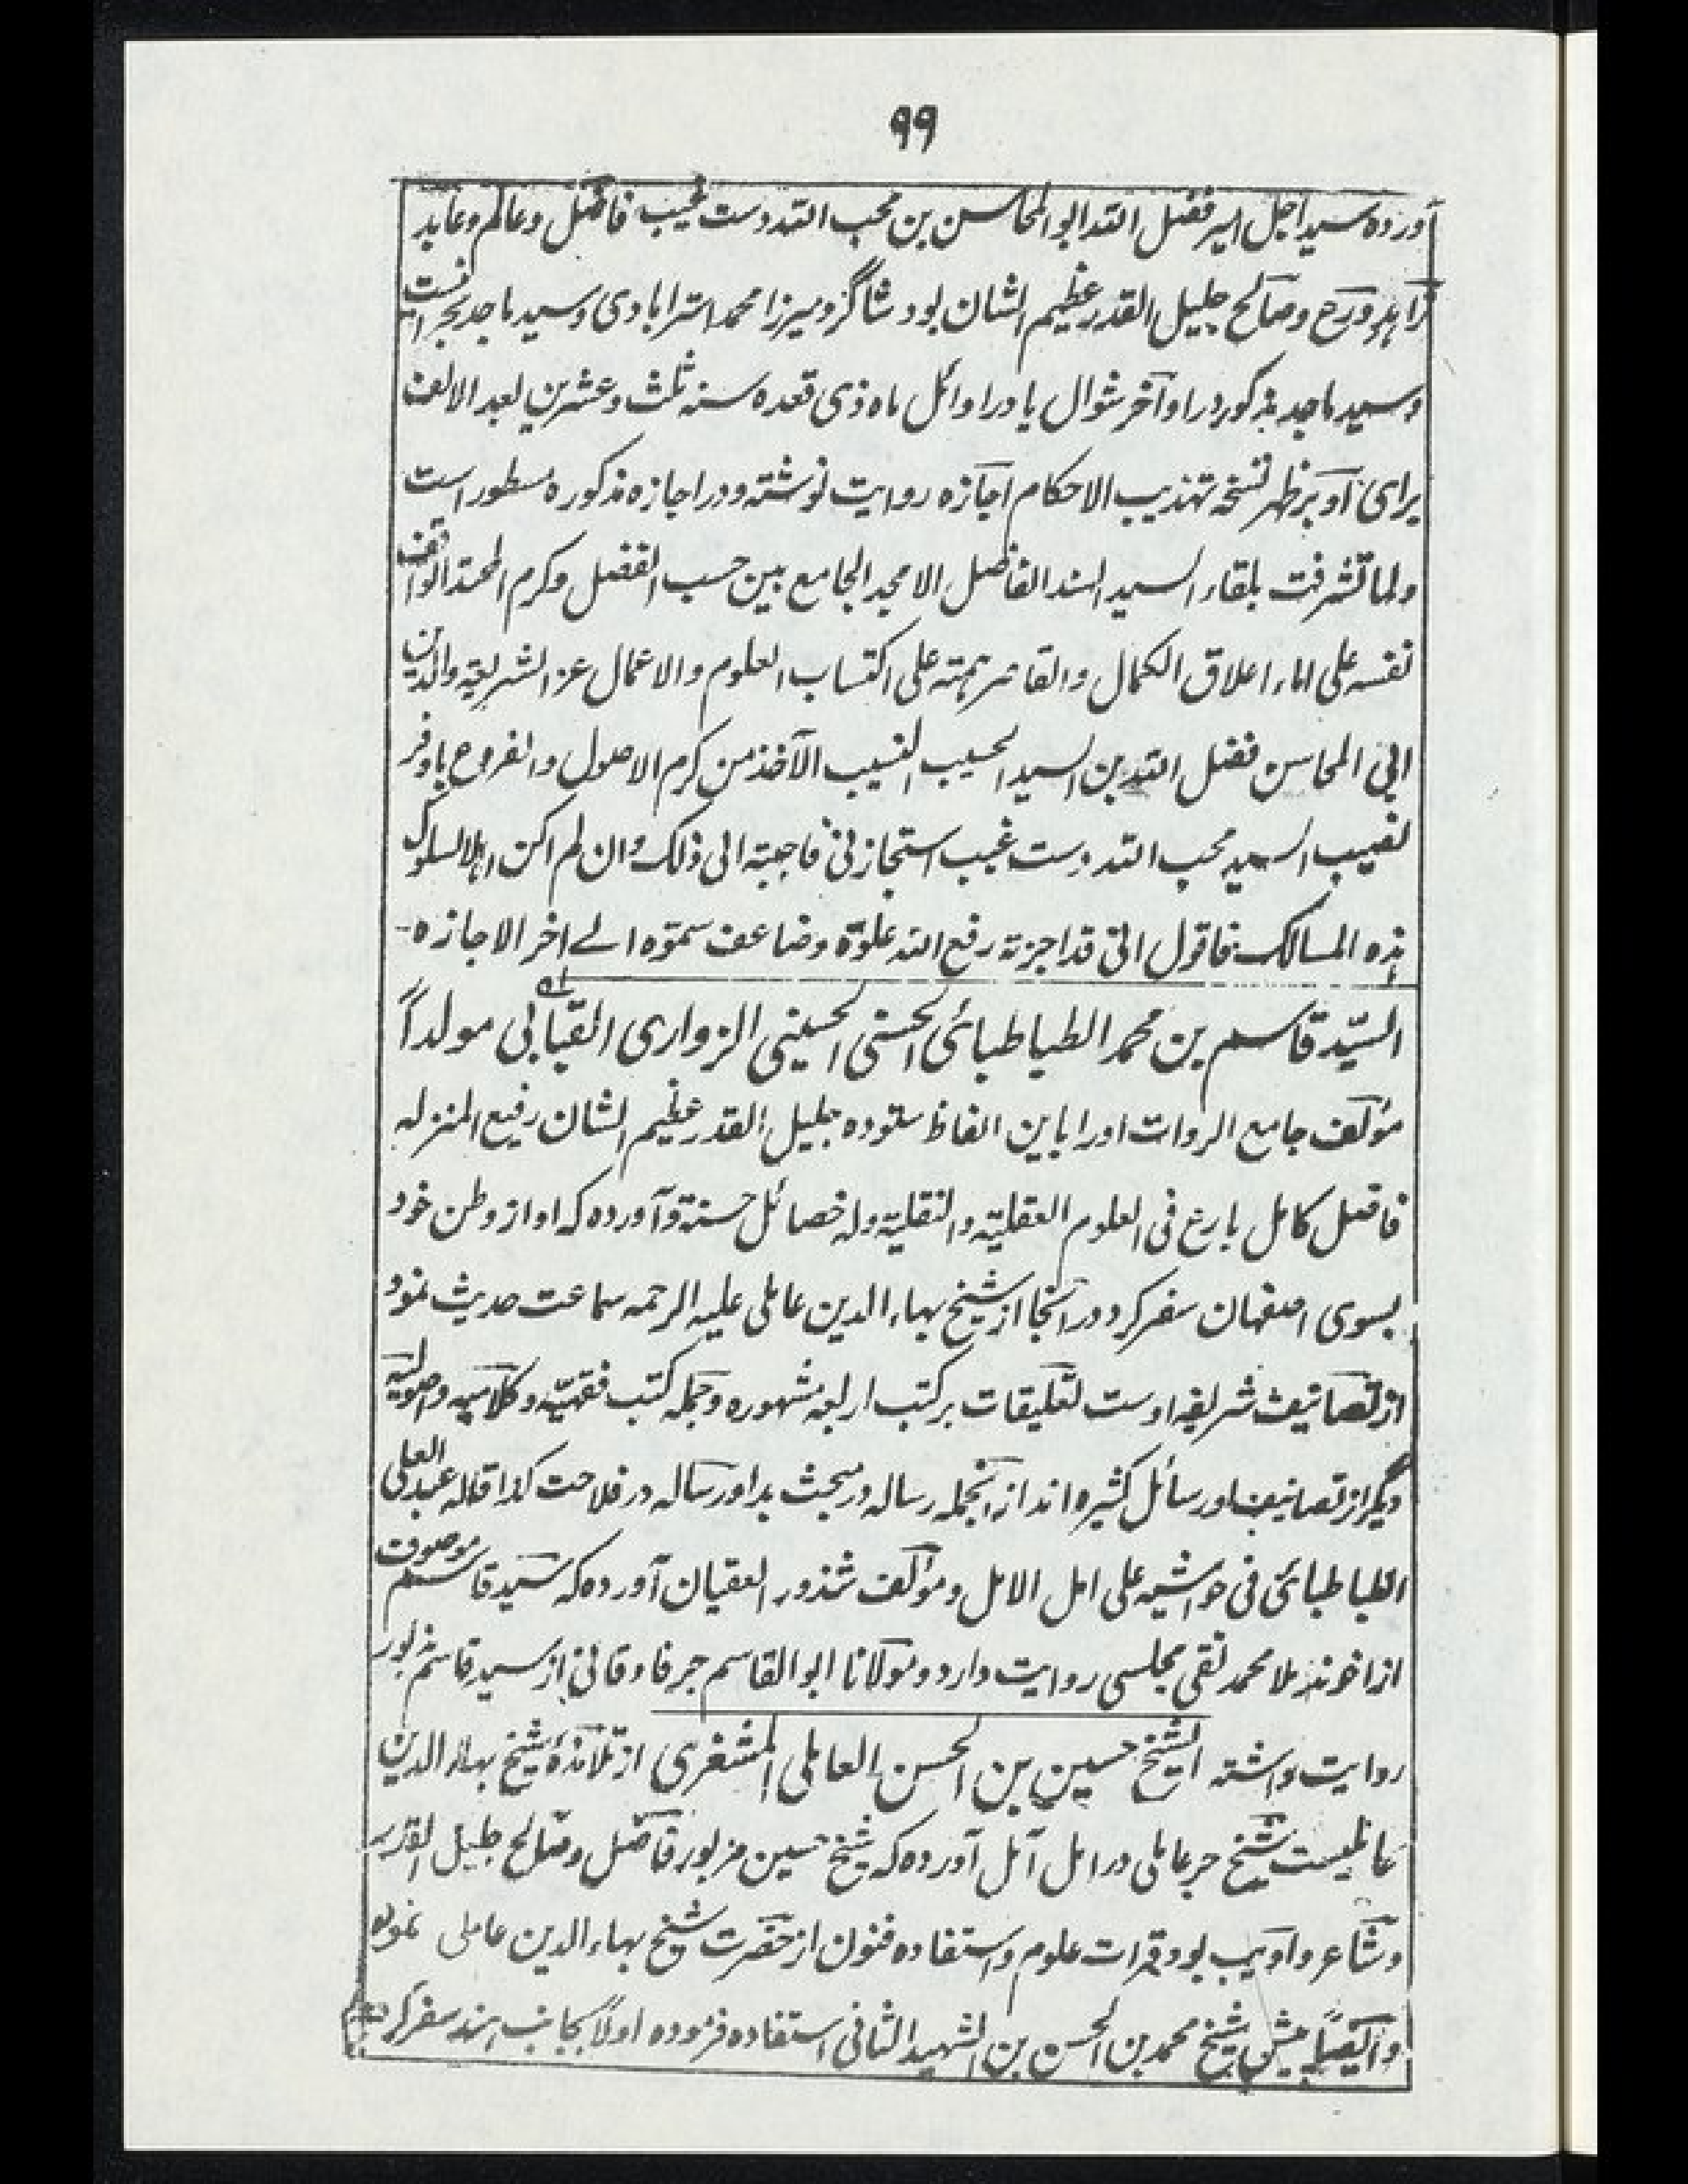 ۹۹
آورده سید اجل امیر فضل الله ابو المحاسن بن محب الله دست غیب فاضل و عالم و عابد
زاهد و ورع و صالح جلیل القدر عظیم الشان بود شاگرد میرزا محمد استرابادی و سید ماجد بحرانیست
و سید ماجد مذکور در اواخر شوال یا در اوائل ماه ذی قعده سنه ثلث و عشرین بعد الالف
برای او بر ظهر نسخه تهذیب الاحکام اجازه روایت نوشته و در اجازه مذکوره مسطور است
ولما تشرفت بلقاء السید السند الفاضل الامجد الجامع بین حسب الفضل و کرم المحتد الواقف
نفسه علی اعلاق الکمال والقاصر همته علی اکتساب العلوم والاعمال عز الشریعة والدین
ابی المحاسن فضل الله بن السید الحسیب النسیب الآخذ من کرم الاصول والفروع باوفر
نصیب السید محب الله دست غیب استجازنی فاجبته الی ذلک وان لم اکن اهلا لسلوک
هذه المسالک فاقول انی قد اجزته رفع الله علوّه وضاعف سموّه الے اخر الاجازه
السیّد قاسم بن محمد الطباطبائی الحسنی الحسینی الزواری القهبائی مولداً
مؤلف جامع الروات اورا باین الفاظ ستوده جلیل القدر عظیم الشان رفیع المنزله
فاضل کامل بارع فی العلوم العقلیّة والنقلیّة وله خصائل حسنة و آورده که او از وطن خود
بسوی اصفهان سفر کرد و در آنجا از شیخ بهاء الدین عاملی علیه الرحمه سماعت حدیث نمود
از تصانیف شریفه اوست تعلیقات بر کتب اربعه مشهوره و جمله کتب فقهیّه و کلامیه و اصولیه
دیگر از تصانیف او رسائل کثیره اند از انجمله رساله در مبحث بدا و رساله در فلاحت کذا قاله عبد العلی
الطباطبائی فی حواشیه علی امل الامل و مؤلف شذور العقیان آورده که سید قاسم موصوف
از اخوند ملا محمد تقی مجلسی روایت دارد و مولانا ابو القاسم جرفادقانی از سید قاسم مزبور
روایت داشته الشیخ حسین بن الحسن العاملی المشغری از تلامذۀ شیخ بهاء الدین
عاملیست شیخ حر عاملی در امل آمل آورده که شیخ حسین مزبور فاضل و صالح جلیل القدر
و شاعر و ادیب بود و قرات علوم و استفاده فنون از حضرت شیخ بهاء الدین عاملی نموده
و ایضاً پیش شیخ محمد بن الحسن بن الشهید الثانی استفاده فرموده اولاً بجانب هند سفر کرد